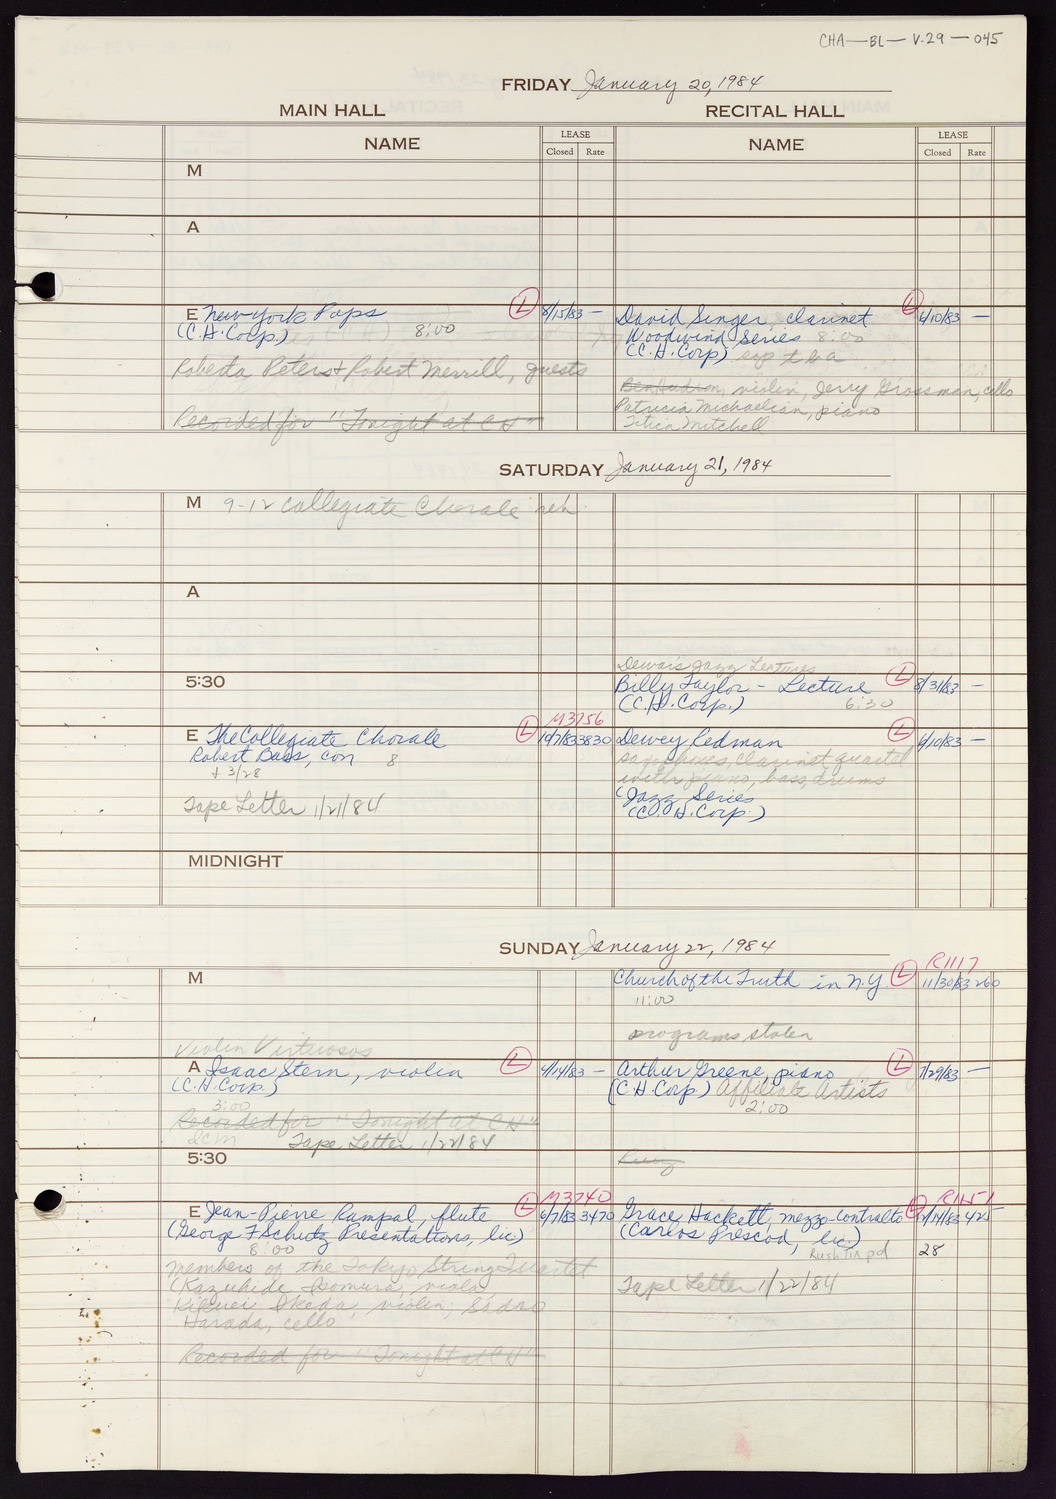 CHA—BL—V.29—045
FRIDAY January 20, 1984
MAIN HALL RECITAL HALL
NAME LEASE NAME LEASE
Closed Rate Closed Rate
M
A
E New York Pops (L) 8/15/83 — David Singer, clarinet (L) 6/10/83 —
(C.H. Corp.) 8:00 Woodwind Series 8:00
(C.H. Corp)
Roberta Peters + Robert Merrill, guests
Ben Hudson, violin, Jerry Grossman, cello
Patricia Michaelian, piano
Recorded for "Tonight at CH" Mitchell
SATURDAY January 21, 1984
M 9-12 Collegiate Chorale reh
A
Jazz Lectures
5:30 Billy Taylor - Lecture (L) 8/31/83 —
(C.H. Corp.) 6:30
M3756
E The Collegiate Chorale (L) 10/7/83 3830 Dewey Redman (L) 6/10/83 —
Robert Bass, con 8 saxophones, clarinet, quartet
+ 3/28 with piano, bass, drums
Tape Letter 1/21/84 (Jazz Series
(C.H. Corp.)
MIDNIGHT
SUNDAY January 22, 1984
R1117
M Church of the Truth in N.Y. (L) 11/30/83 260
11:00
programs stolen
Violin Virtuosos
A Isaac Stern, violin (L) 4/14/83 — Arthur Greene, piano (L) 7/29/83 —
(C.H. Corp.) (C.H. Corp) Affiliate Artists
3:00 2:00
Recorded for "Tonight at CH"
Tape Letter 1/22/84
5:30
M3740 R1151
E Jean-Pierre Rampal, flute (L) 6/7/83 3470 Grace Hackett, mezzo-contralto (L) 425
(George F Schutz Presentations, Inc) (Carlos Prescod, Inc.)
8:00 Rush Tix pd 28
members of the Tokyo String Quartet
(Kazuhide Isomura, viola, Tape Letter 1/22/84
Kikuei Ikeda, violin, Sadao
Harada, cello
Recorded for "Tonight at CH"